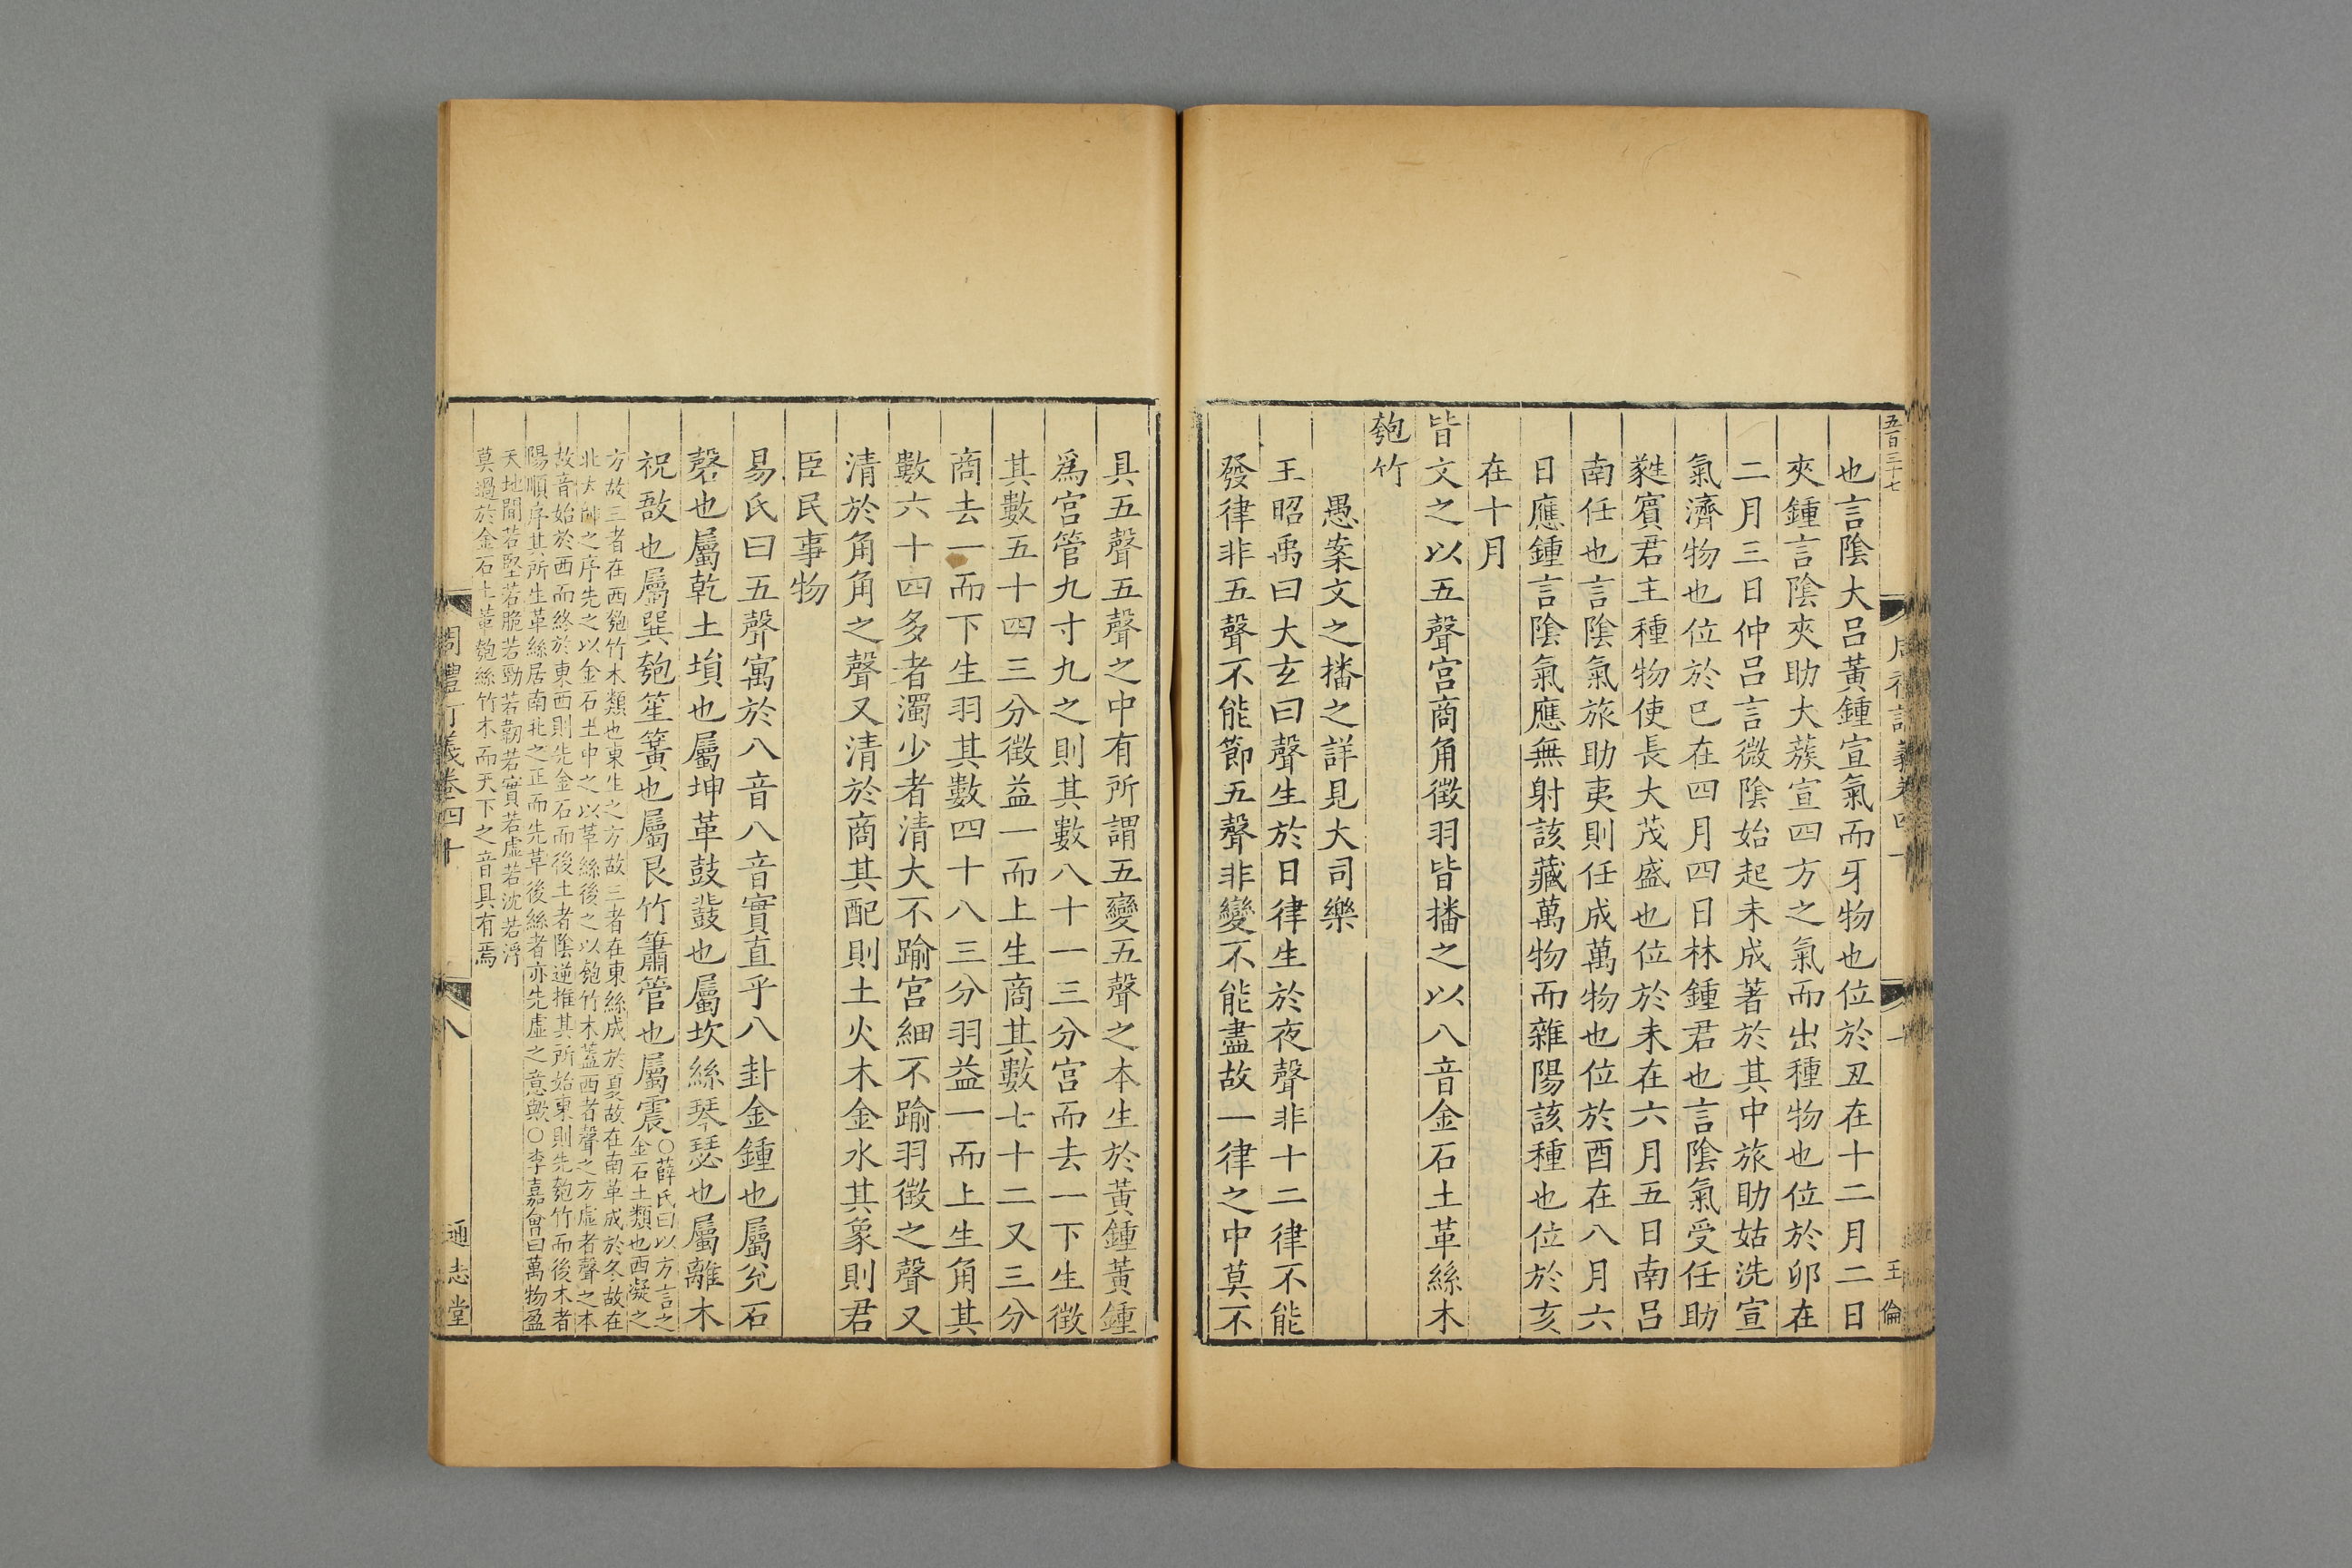 五百三十七
王倫
也言陰大吕黃鍾宣氣而牙物也位於丑在十二月二日
夾鍾言陰夾助大蔟宣四方之氣而出種物也位於卯在
二月三日仲吕言微陰始起未成著於其中旅助姑洗宣
氣濟物也位於巳在四月四日林鍾君也言陰氣受任助
蕤賓君主種物使長大茂盛也位於未在六月五日南吕
南任也言陰氣旅助夷則任成萬物也位於酉在八月六
日應鍾言陰氣應無射該藏萬物而雜陽該種也位於亥
在十月
皆文之以五聲宫商角徵羽皆播之以八音金石土革絲木
匏竹
愚案文之播之詳見大司樂
王昭禹曰大玄曰聲生於日律生於夜聲非十二律不能
發律非五聲不能節五聲非變不能盡故一律之中莫不
具五聲五聲之中有所謂五變五聲之本生於黃鍾黃鍾
爲宫管九寸九之則其數八十一三分宫而去一下生徵
其數五十四三分徵益一而上生商其數七十二又三分
商去一而下生羽其數四十八三分羽益一而上生角其
數六十四多者濁少者清大不踰宫細不踰羽徵之聲又
清於角角之聲又清於商其配則土火木金水其象則君
臣民事物
易氏曰五聲寓於八音八音實直乎八卦金鍾也屬兊石
磬也屬乾土塤也屬坤革鼓鼗也屬坎絲琴瑟也屬離木
柷敔也屬巽匏笙簧也屬艮竹簫管也屬震○薛氏曰以方言之
金石土類也西凝之
方故三者在西匏竹木類也東生之方故三者在東絲成於夏故在南革成於冬故在
北大師之序先之以金石土中之以革絲後之以匏竹木蓋西者聲之方虛者聲之本
故音始於西而終於東西則先金石而後土者陰逆推其所始東則先匏竹而後木者
陽順序其所生革絲居南北之正而先革後絲者亦先虛之意歟○李嘉會曰萬物盈
天地間若堅若脆若勁若韌若實若虛若沈若浮
莫過於金石土革匏絲竹木而天下之音具有焉
周禮訂義卷四十
八
通志堂